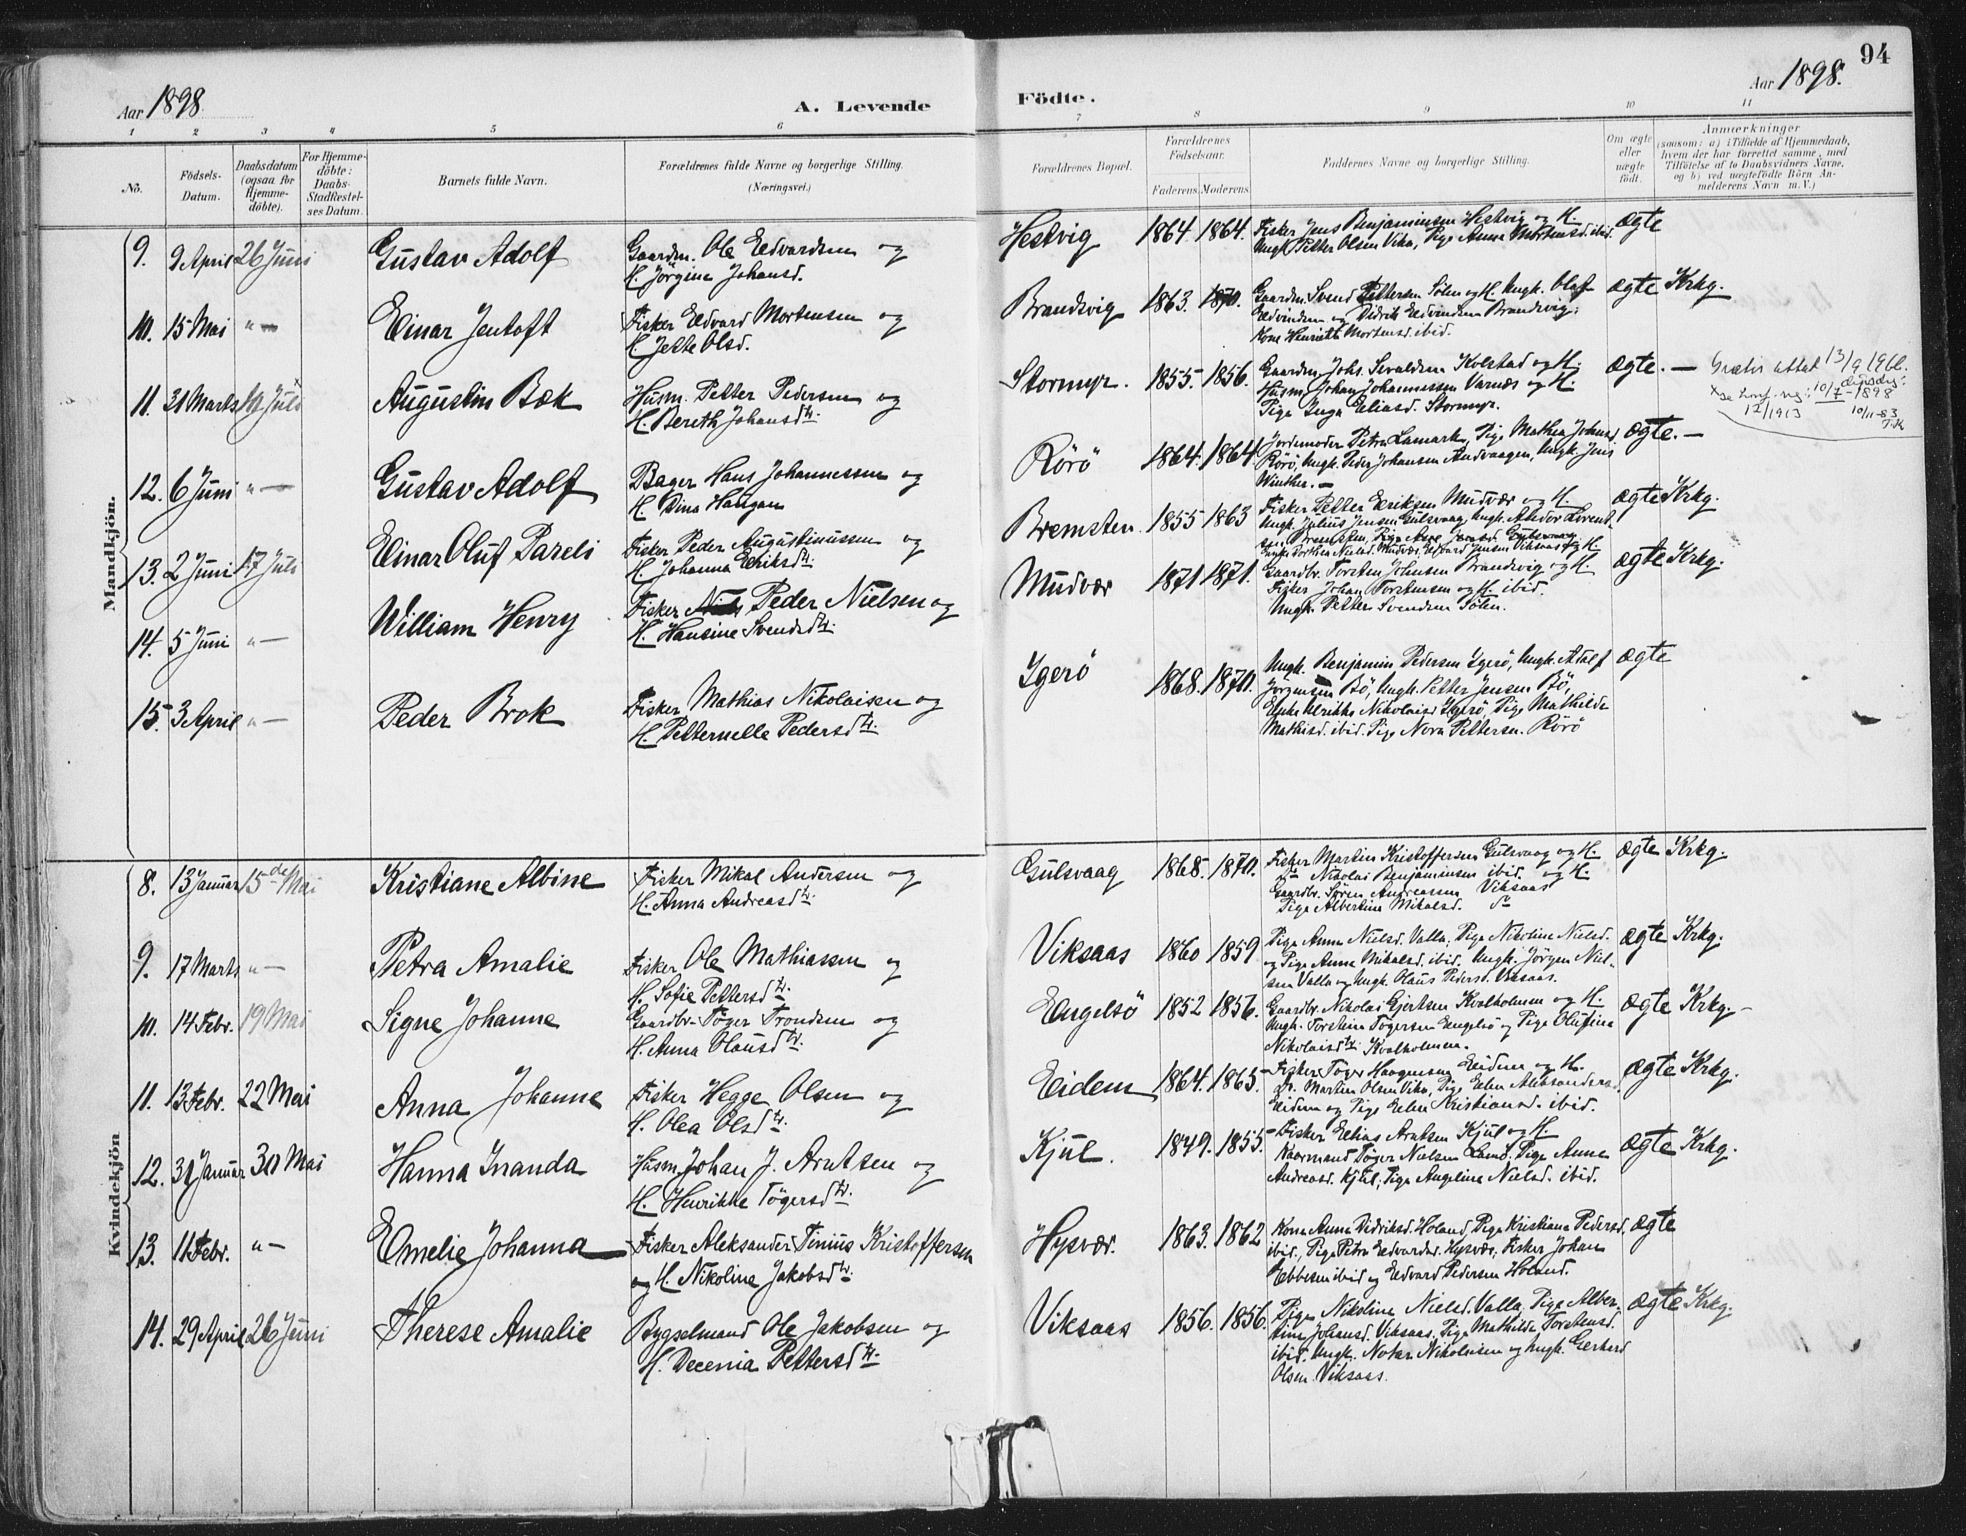 94
Aar 1898.
A. Levende
Födte.
Aar 1898.
1 2 3 4 5 6 7 8 9 10 11
No.
Födsels-
Datum.
Daabsdatum
(ogsaa for
Hjemme-
döbte).
For Hjemme-
döbte:
Daabs-
Stadfæstel-
ses Datum.
Barnets fulde Navn.
Forældrenes fulde Navne og borgerlige Stilling.
(Næringsvei.)
Forældrenes Bopæl.
Forældrenes
Födselsaar.
Faderens. Moderens.
Faddernes Navne og borgerlige Stilling.
Om ægte
eller
uægte
födt.
Anmærkninger
(saasom: a) i Tilfælde af Hjemmedaab,
hvem der har forrettet samme, med
Tilföielse af to Daabsvidners Navne,
og b) ved uægtefödte Börn An-
melderens Navn m. V.)
Mandkjön.
9. 9 April 26 Juni Gustav Adolf
Gaardm. Ole Edvardsen og
H. Jörgine Johansd.
Hestvig 1864. 1864.
Fisker Jens Benjaminsen Hestvig og H.
Ungk. Petter Olsen Vika, Pige Anna Mortensd. ibid.
ægte
10. 15 Mai "— Einar Jentoft
Fisker Edvard Mortensen og
H. Jette Olsd.
Brandvig 1863. 1870.
Gaardm. Svend Pettersen Sölen og H. Ungk. Olaf
Edvindsen og Didrik Edvindsen Brandvig;
Kone Henriette Mortensd. ibid.
ægte Krkg.
11. 31 Marts 10 Juli Augustin Bæk
Husm. Petter Pedersen og
H. Bereth Johansdtr.
Stormyr. 1855. 1856.
Gaardm. Johs. Sevaldsen Kolstad og H.
Husm. Johan Johannessen Varnæs og H.
Pige Inga Eliasd. Stormyr.
ægte. —
Gratis attest 13/9 1966.
10/7-1898
12/1913
10/11-83
T.K
12. 6 Juni "— Gustav Adolf
Bager Hans Johannessen og
H. Dina Haugan
Rörö 1864. 1864.
Jordemoder Petra Lamark, Pige Mathea Johansd.
Rörö, Ungk. Peder Johansen Andvaagen, Ungk. Jens
Winther. —
ægte. —
13. 2 Juni 17 Juli Einar Oluf Pareli
Fisker Peder Augustinussen og
H. Johanna Eriksdtr.
Bremsten. 1855 1863
Fisker Petter Eriksen Mudvær og H.
Ungk. Julius Jensen Gulsvaag, Ungk. Alidor Lorent-
sen Bremsten, Pige Ane Jensd. Gulsvaag
Enke Dorthea Nielsd. Mudvær, Edvard Jensen Viksaas og H.
ægte Krkg.
14. 5 Juni "— William Henry
Fisker Peder Nielsen og
H. Hansine Svendsdtr.
Mudvær 1871 1871.
Gaardbr. Torsten Johnsen Brandvig og H.
Fisker Johan Torstensen og H. ibid.
Ungk. Petter Svendsen Sölen.
ægte Krkg.
15. 3 April "— Peder Brok
Fisker Mathias Nikolaisen og
H. Petternelle Pedersdtr.
Ygerö 1868. 1870.
Ungk. Benjamin Pedersen Ygerö, Ungk. Adolf
Jörgensen Bö, Ungk. Petter Jensen Bö,
Enke Ulrikke Nikolaisd. Ygerö, Pige Mathilde
Mathisd. ibid. Pige Nora Pettersen. Rörö
ægte
Kvindekjön
8. 13 Januar 15de Mai Kristiane Albine
Fisker Mikal Andersen og
H. Anna Andreasdtr.
Gulsvaag 1868. 1870.
Fisker Martin Kristoffersen Gulsvaag og H.
Do Nikolai Benjaminsen ibid. og H.
Gaardbr. Sören Andreassen Viksaas
Pige Albertine Mikalsd. do
ægte Krkg.
9. 17 Marts "— Petra Amalie
Fisker Ole Mathiassen og
H. Sofie Pettersdtr.
Viksaas 1860 1859
Pige Anne Nielsd. Valla, Pige Nikoline Nielsd.
og Pige Anna Mikalsd. ibid. Ungk. Jörgen Niel-
sen Valla og Ungk. Olaus Peders. Viksaas.
ægte Krkg.
10. 14 Febr. 19 Mai Signe Johanne
Gaardbr. Töger Trondsen og
H. Anna Olausdtr.
Engelsö 1852 1856.
Gaardbr. Nikolai Gjertsen Kvalholmen og H.
Ungk. Torstein Tögersen Engelsö og Pige Olufina
Nikolaisdtr. Kvalholmen.
ægte Krkg. —
11. 13 Febr. 22 Mai Anna Johanne
Fisker Hegge Olsen og
H. Olea Olsdtr.
Eidem 1864. 1865.
Fisker Töger Haagensen Eidem og H.
Do. Martin Olsen Vika, Pige Elen Aleksandersd.
Eidem og Pige Elen Kristiansd. ibid.
ægte Krkg.
12. 31 Januar 30 Mai Hanna Inanda
Husm. Johan J. Arntsen og
H. Henrikke Tögersdtr.
Kjul. 1849. 1855.
Fisker Elias Arntsen Kjul og H.
Kaarmand Töger Nielsen Lund. Pige Anna
Andreasd. Kjul, Pige Angeline Nielsd. ibid.
ægte Krkg.
13. 11 Febr. "— Emelie Johanna
Fisker Aleksander Tinius Kristoffersen
og H. Nikoline Jakobsdtr.
Hysvær. 1863. 1862
Kone Anna Didriksd. Holand, Pige Kristiana Pedersd.
ibid., Pige Petra Edvardsd. Hysvær, Fisker Johan
Ebbesen ibid og Edvard Pedersen Holand.
ægte
14. 29 April 26 Juni Therese Amalie
Bygselmand Ole Jakobsen og
H. Decenia Pettersdtr.
Viksaas 1856. 1856.
Pige Nikoline Nielsd. Valla, Pige Alber-
tine Johansd. Viksaas, Pige Mathilde Torstensd.
ibid. Ungk. Notar Nikolaisen og Ungk. Gerhard
Olsen Viksaas.
ægte Krkg.